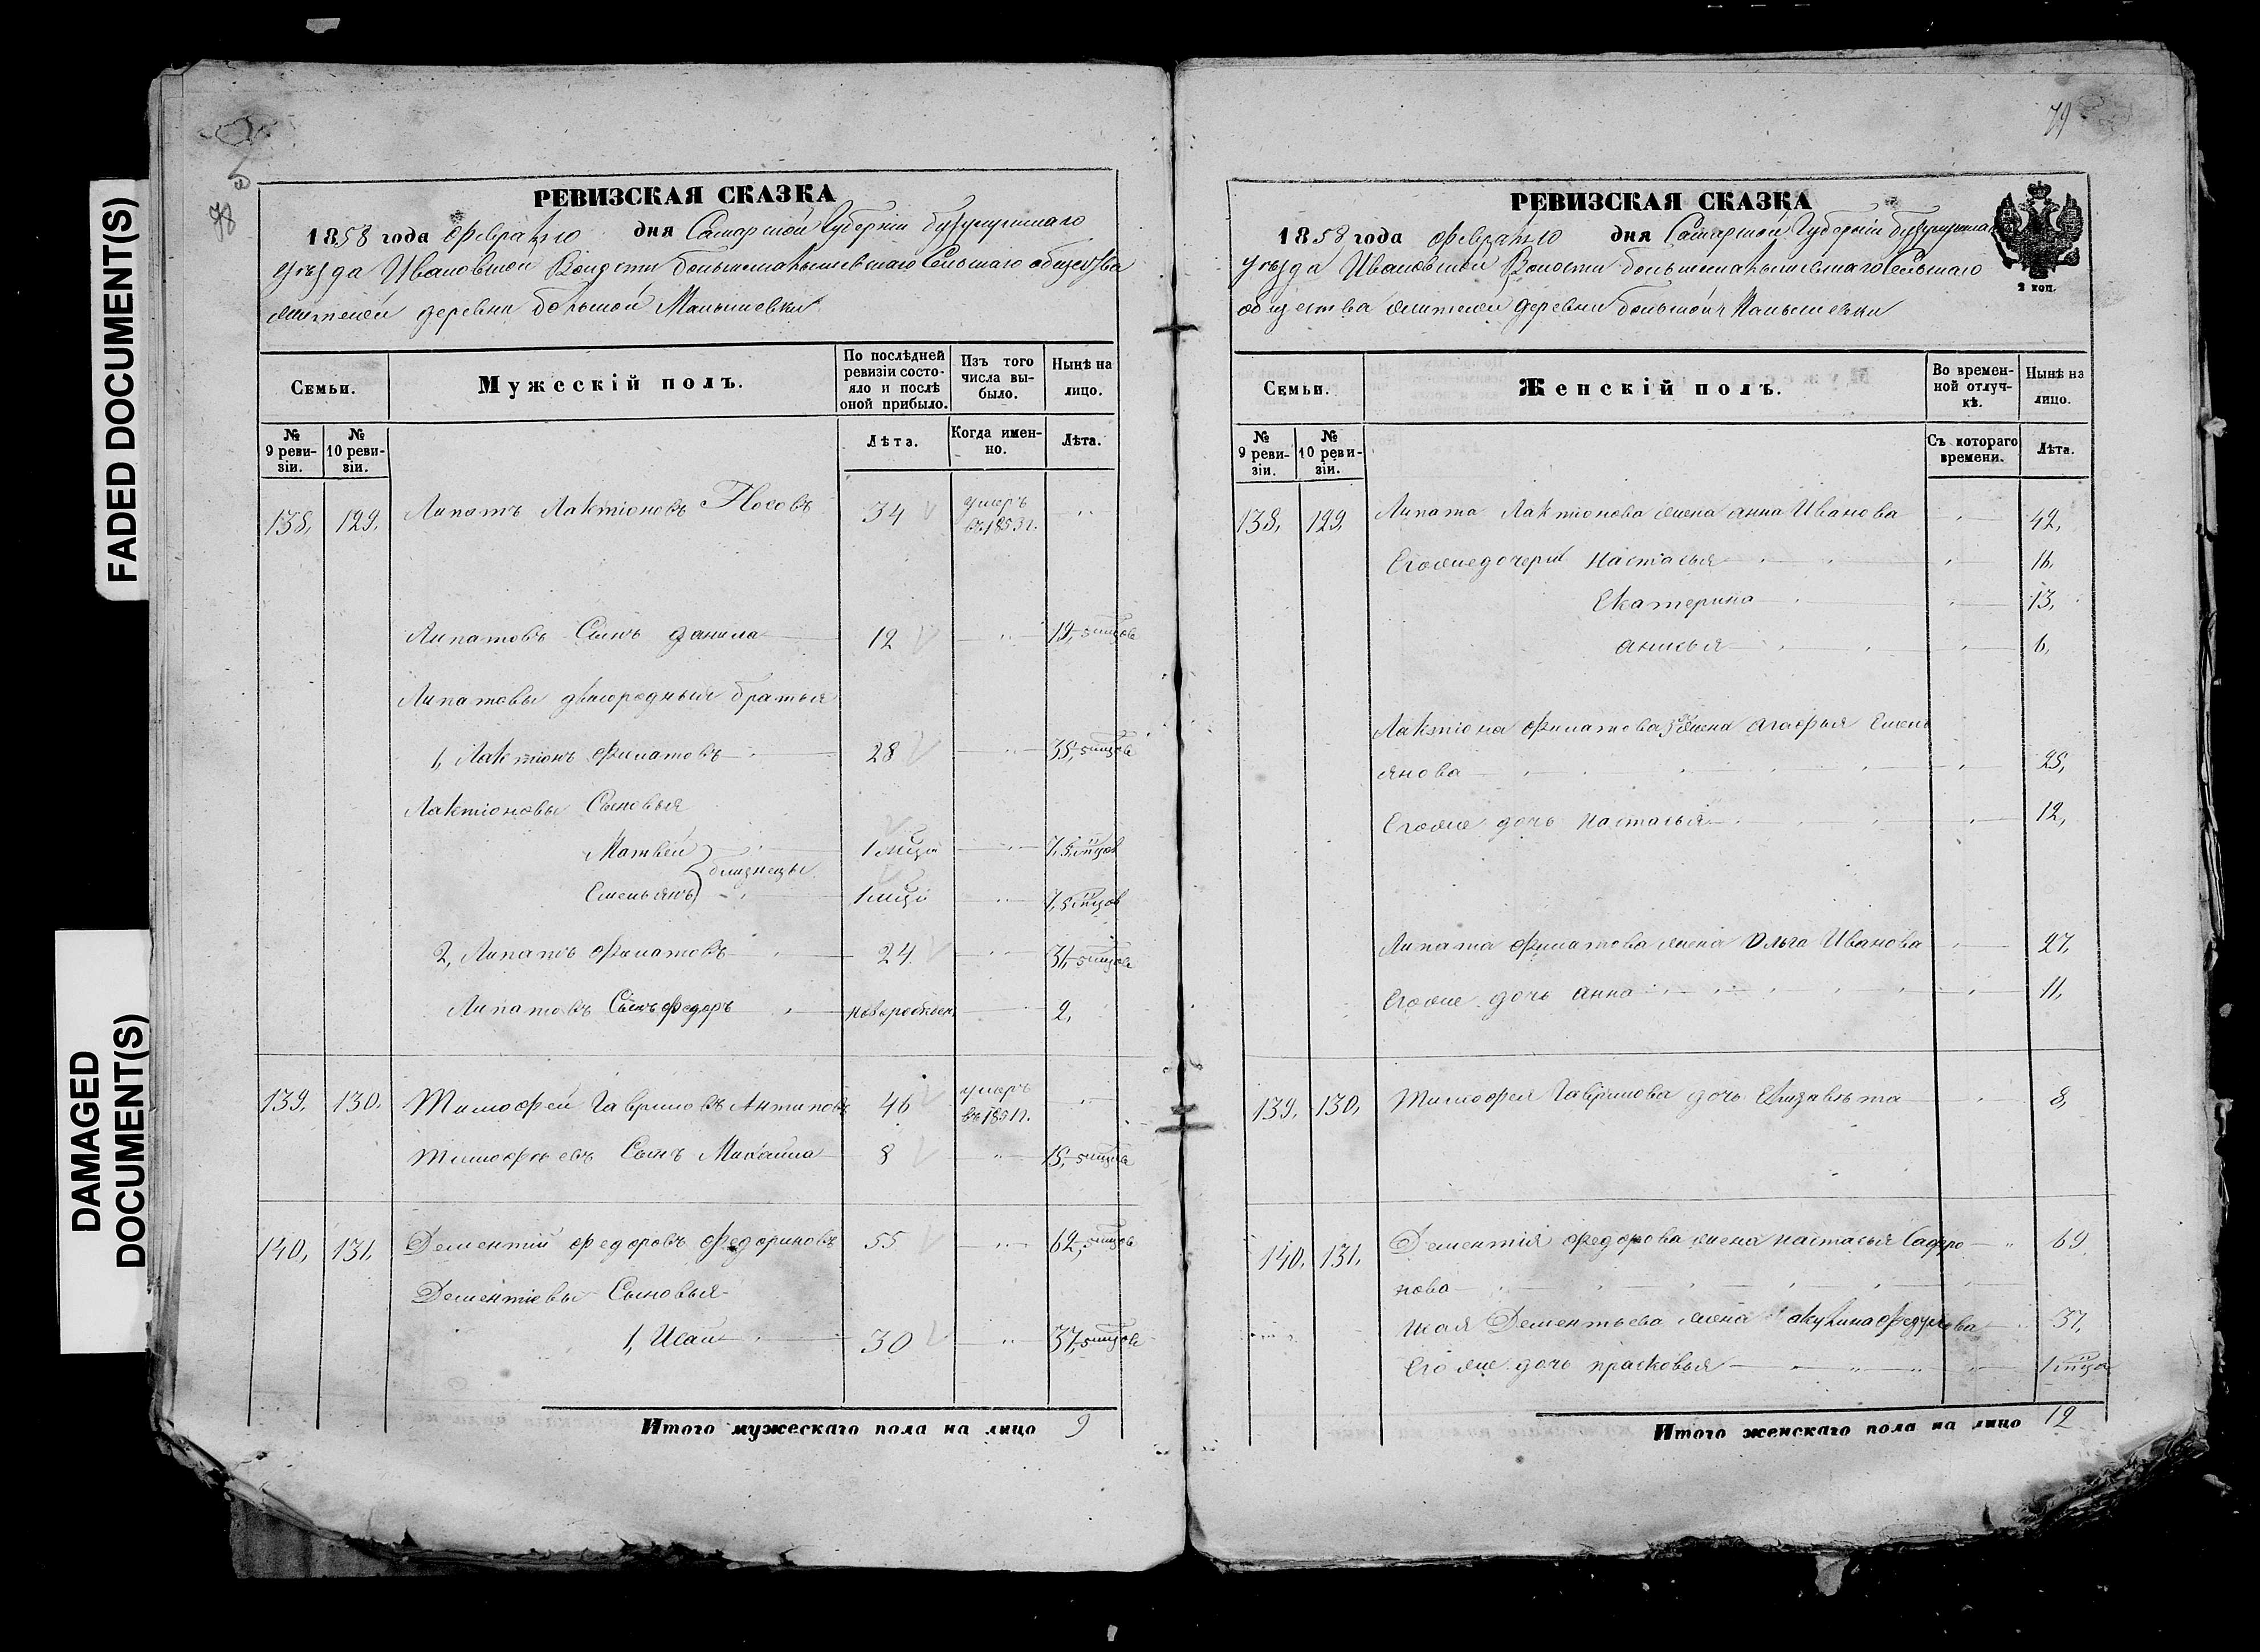 FADED DOCUMENT(S)
DAMAGED
DOCUMENT(S)
78
РЕВИЗСКАЯ СКАЗКА
1858 года февраля 10 дня Самарской Губерніи Бузулукскаго
уѣзда Ивановской Волости больше Малышевскаго Сельскаго общества
жителей деревни большой Малышевки
Семьи.
Мужескій полъ.
По послѣдней ревизіи состояло и послѣ оной прибыло.
Изъ того числа выбыло.
Нынѣ на лицо.
№ 9 ревизіи.
№ 10 ревизіи.
Лѣта.
Когда именно.
Лѣта.
138, 129, Липатъ Лактіоновъ Носовъ 34 умеръ въ 1853 г. "
Липатовъ Сынъ Данила 12 " 19, 5 мцов
Липатовы двоюродныи братья
1, Лактіонъ Филатовъ 28 " 35, 5 мцов
Лактіоновы Сыновья
Матвей } близнецы 1 мцъ " 7, 5 мцов
Емельянъ } 1 мцъ " 7, 5 мцов
2, Липатъ Филатовъ 24 " 31, 5 мцов
Липатовъ Сынъ Федоръ новорожден " 2,
139, 130, Тимофей Гавриловъ Антиповъ 46 умеръ въ 1851 г. "
Тимофѣевъ Сынъ Михайла 8 " 15, 5 мцов
140, 131, Дементій Федоровъ Федориновъ 55 " 62, 5 мцов
Дементіевы Сыновья
1, Исай 30 " 37, 5 мцов
Итого мужескаго пола на лицо 9
79
РЕВИЗСКАЯ СКАЗКА
1858 года февраля 10 дня Самарской Губерніи Бузулукскаго
уѣзда Ивановской Волости больше малышевскаго Сельскаго
общества жителей деревни большой Малышевки
2 коп.
Семьи.
Женскій полъ.
Во временной отлучкѣ.
Нынѣ на лицо.
№ 9 ревизіи.
№ 10 ревизіи.
Съ котораго времени.
Лѣта.
138, 129, Липата Лактіонова жена анна Иванова " 42,
Егоже дочери Настасья " 16,
Екатерина " 13,
анисья " 6,
Лактіона Филатова жена агафья Емель
янова " 25,
Егоже дочь Настасья " 12,
Липата Филатова жена Ольга Иванова " 27,
Егоже дочь анна " 11,
139, 130, Тимофея Гаврилова дочь Елизавѣта " 8,
140, 131, Дементія Федорова жена настасья Сафро
нова " 69
Исая Дементьева жена акулина " 37,
Егоже дочь прасковья " 1
Итого женскаго пола на лицо 12